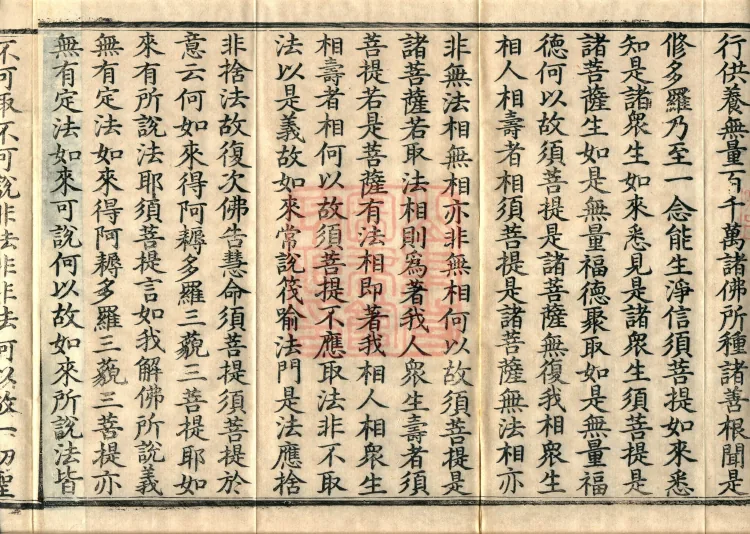 行供養無量百千萬諸佛所種諸善根聞是
修多羅乃至一念能生淨信須菩提如來悉
知是諸衆生如來悉見是諸衆生須菩提是
諸菩薩生如是無量福德聚取如是無量福
德何以故須菩提是諸菩薩無復我相衆生
相人相壽者相須菩提是諸菩薩無法相亦
非無法相無相亦非無相何以故須菩提是
諸菩薩若取法相則爲著我人衆生壽者須
菩提若是菩薩有法相即著我相人相衆生
相壽者相何以故須菩提不應取法非不取
法以是義故如來常說筏喻法門是法應捨
非捨法故復次佛告慧命須菩提須菩提於
意云何如來得阿耨多羅三藐三菩提耶如
來有所說法耶須菩提言如我解佛所說義
無有定法如來得阿耨多羅三藐三菩提亦
無有定法如來可說何以故如來所說法皆
不可取不可說非法非非法何以故一切聖